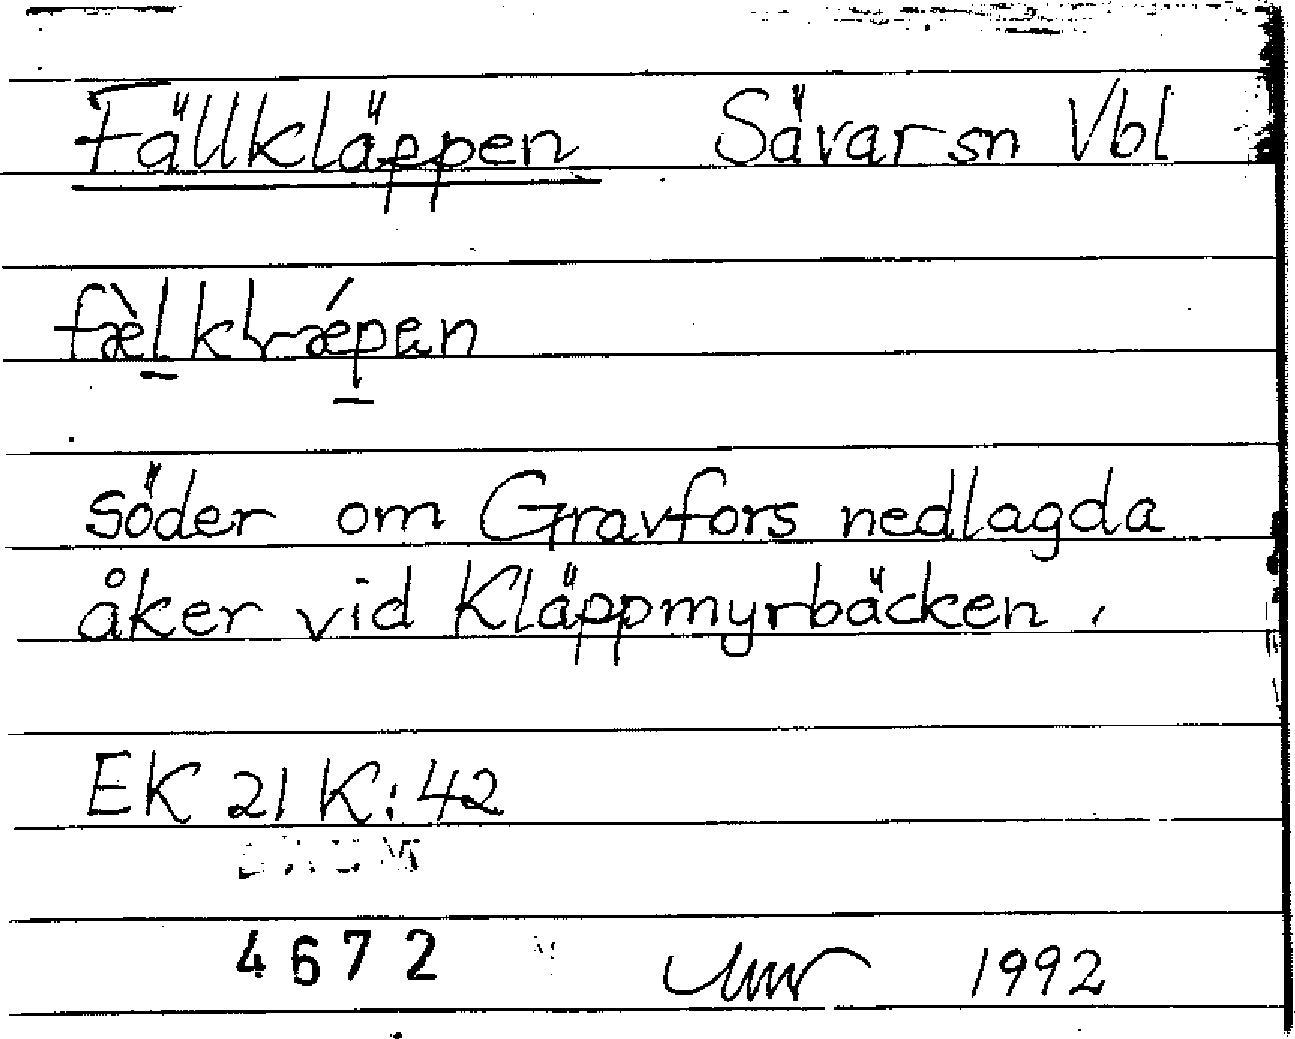 Fällkläppen Sävar sn Vbl
fæ̀l̲klǽp̲en
söder om Gravfors nedlagda
åker vid Kläppmyrbäcken.
EK 21 K:42
DAUM
4672 1992